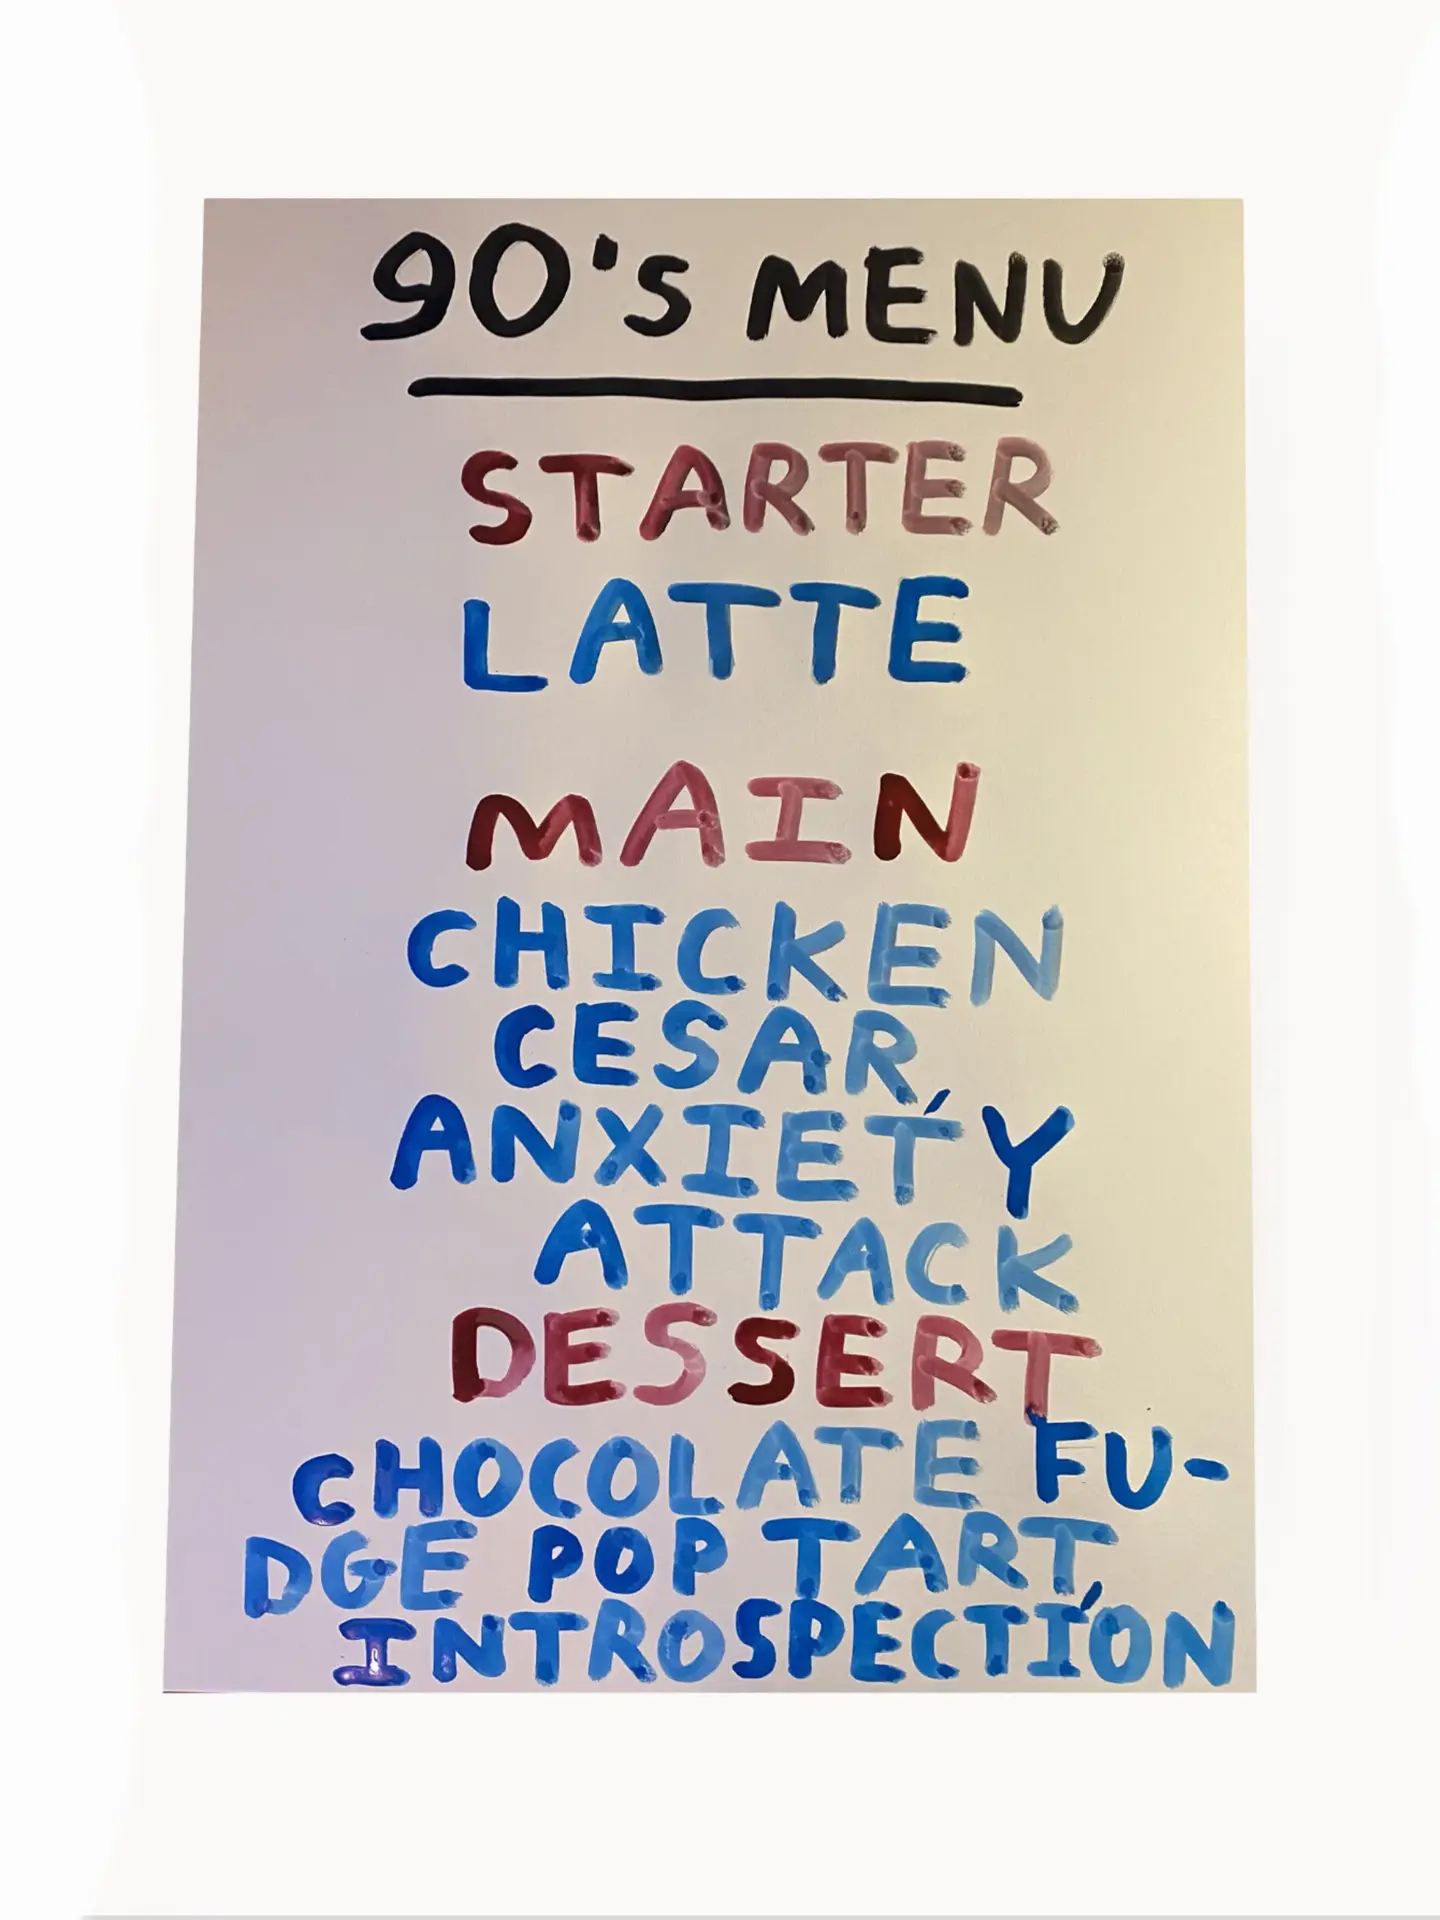 90's MENU
STARTER
LATTE
MAIN
CHICKEN
CESAR,
ANXIETY
ATTACK
DESSERT
CHOCOLATE FU-
DGE POP TART,
INTROSPECTION